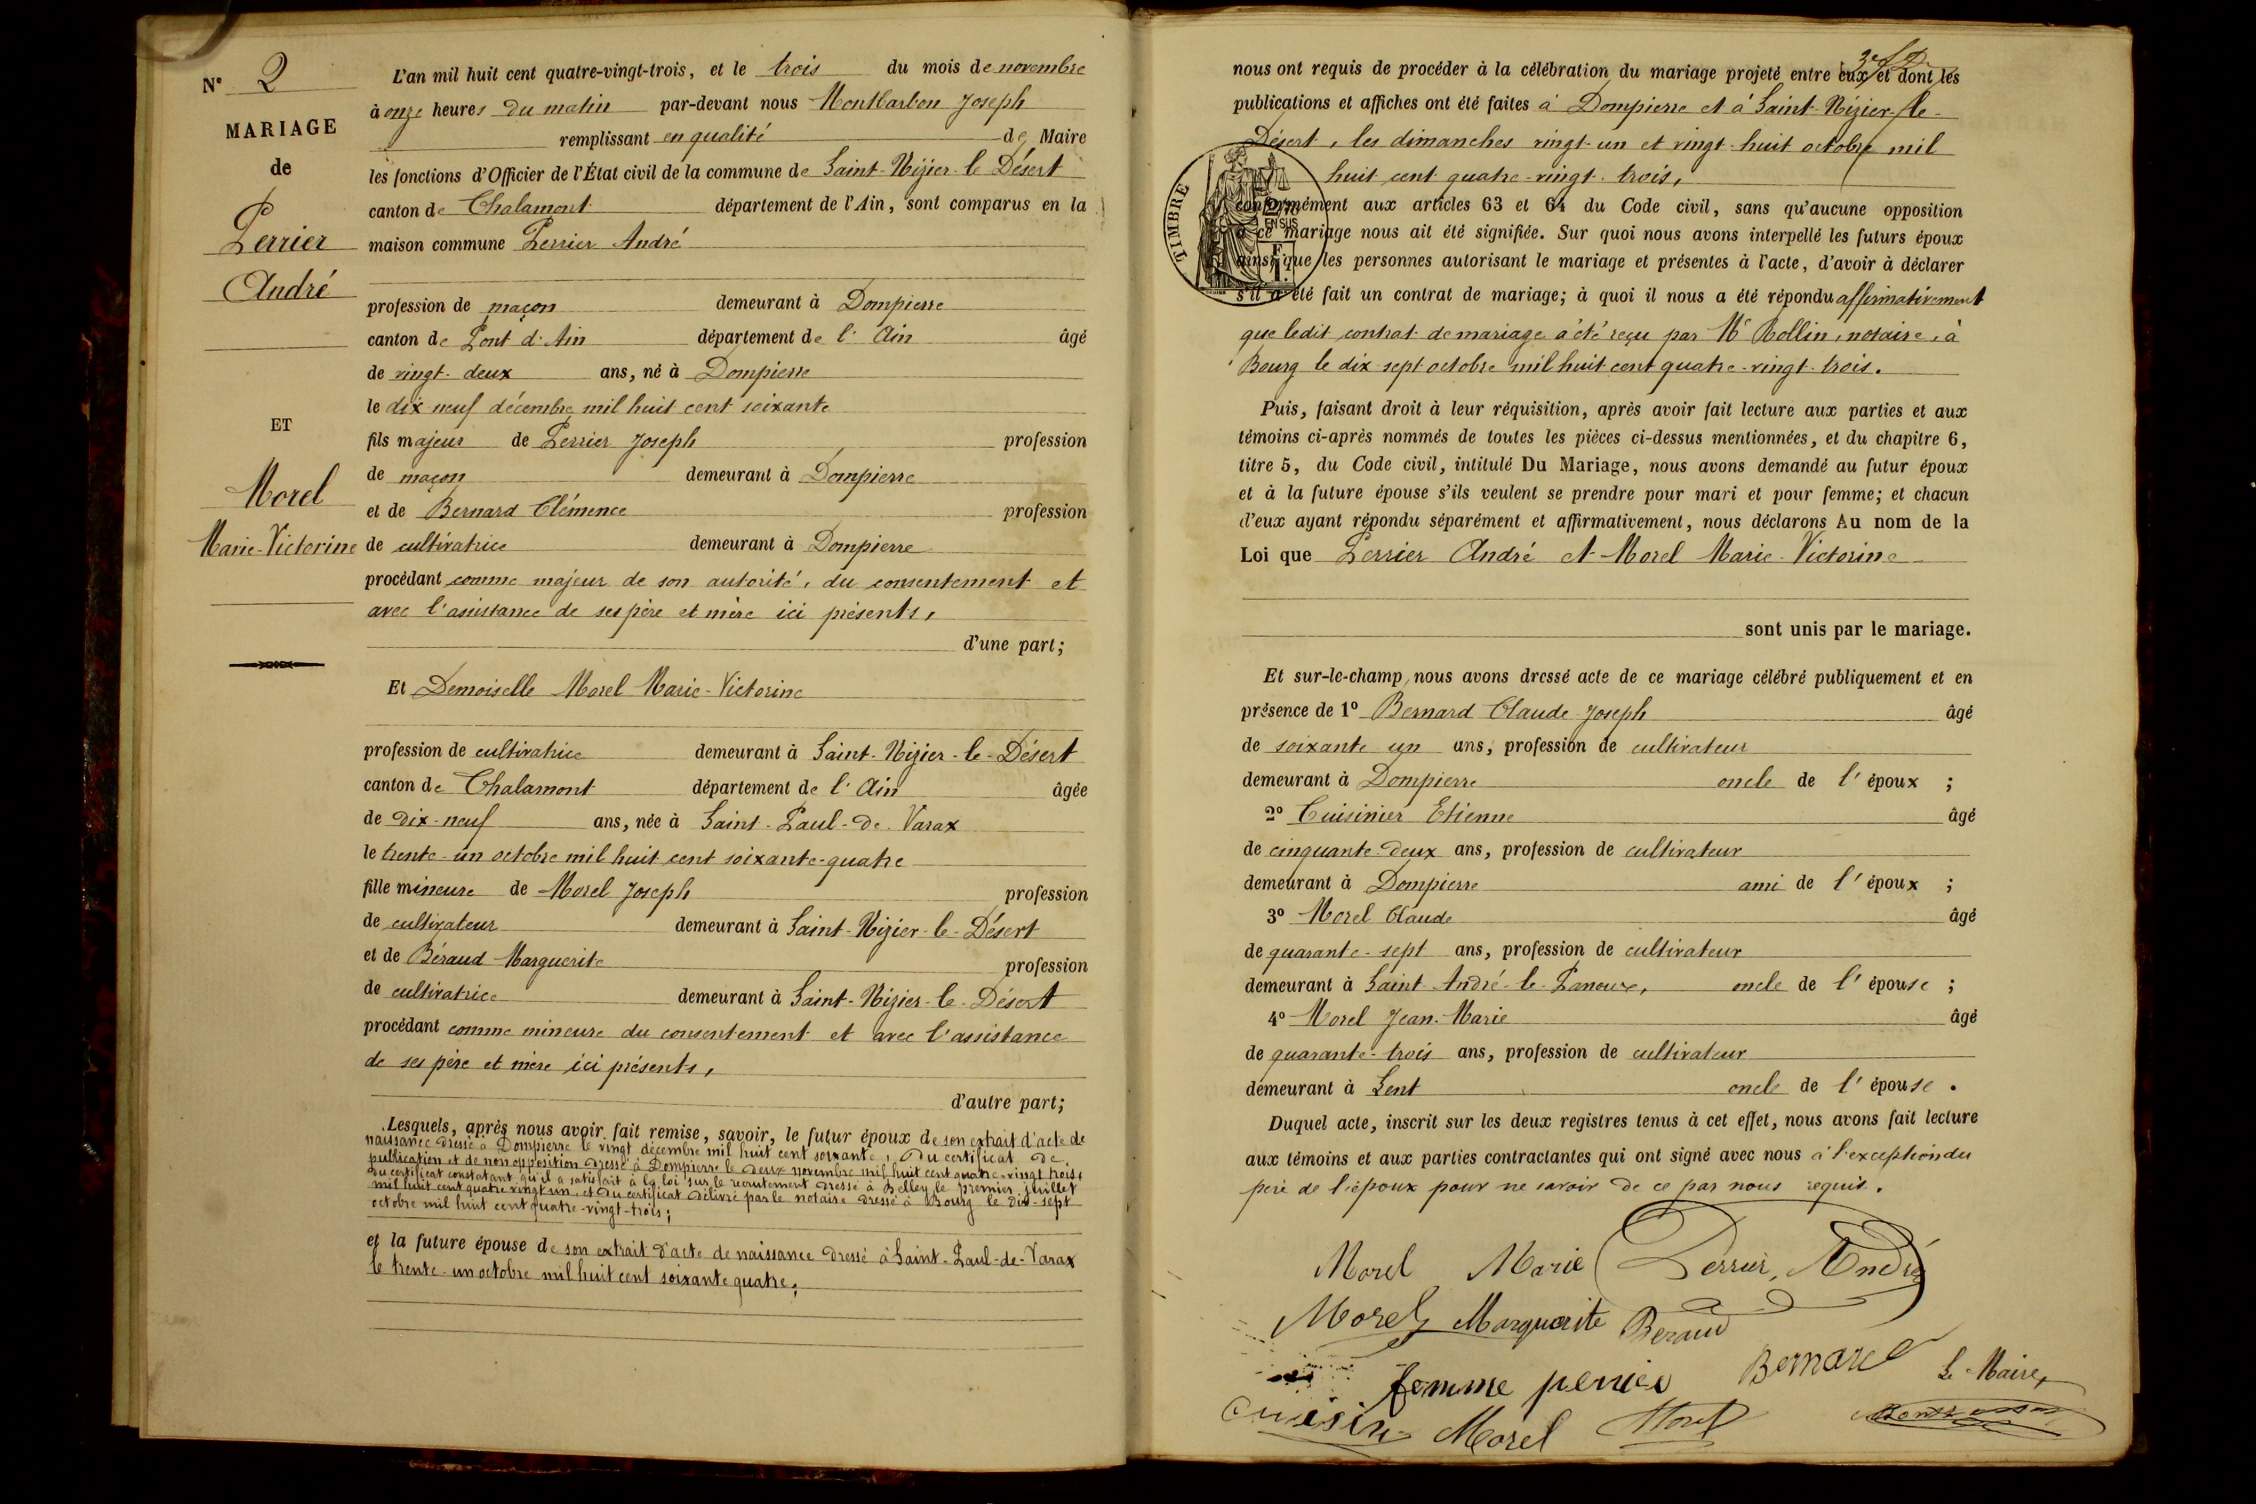 N° 2
MARIAGE
de
Perrier
André
ET
Morel
Marie-Victorine
L'an mil huit cent quatre-vingt-trois, et le trois du mois de novembre
à onze heures du matin par-devant nous Montbarbon Joseph
remplissant en qualité de Maire
les fonctions d'Officier de l'État civil de la commune de Saint-Nizier-le Désert
canton de Chalamont département de l'Ain, sont comparus en la
maison commune Perrier André
profession de maçon demeurant à Dompierre
canton de Pont d'Ain département de l'Ain âgé
de vingt-deux ans, né à Dompierre
le dix neuf décembre mil huit cent soixante
fils majeur de Perrier Joseph profession
de maçon demeurant à Dompierre
et de Bernard Clémence profession
de cultivatrice demeurant à Dompierre
procédant comme majeur de son autorité, du consentement et
avec l'assistance de ses père et mère ici présents,
d'une part;
Et Demoiselle Morel Marie-Victorine
profession de cultivatrice demeurant à Saint-Nizier-le-Désert
canton de Chalamont département de l'Ain âgée
de dix-neuf ans, née à Saint-Paul-de-Varax
le trente-un octobre mil huit cent soixante-quatre
fille mineure de Morel Joseph profession
de cultivateur demeurant à Saint-Nizier-le-Désert
et de Béraud Marguerite profession
de cultivatrice demeurant à Saint-Nizier-le-Désert
procédant comme mineure du consentement et avec l'assistance
de ses père et mère ici présents,
d'autre part;
Lesquels, après nous avoir fait remise, savoir, le futur époux de son extrait d'acte de
naissance dressé à Dompierre le vingt décembre mil huit cent soixante, du certificat de
publication et de non opposition dressé à Dompierre le deux novembre mil huit cent quatre-vingt trois,
du certificat constatant qu'il a satisfait à la loi sur le recrutement dressé à Belley le premier juillet
mil huit cent quatre vingt un et du certificat délivré par le notaire dressé à Bourg le dix-sept
octobre mil huit cent quatre-vingt-trois;
et la future épouse de son extrait d'acte de naissance dressé à Saint-Paul-de-Varax
le trente-un octobre mil huit cent soixante quatre;
nous ont requis de procéder à la célébration du mariage projeté entre eux et dont les
publications et affiches ont été faites à Dompierre et à Saint-Nizier-le-
Désert, les dimanches vingt-un et vingt-huit octobre mil
huit cent quatre-vingt-trois,
TIMBRE
EN SUS
conformément aux articles 63 et 64 du Code civil, sans qu'aucune opposition
à ce mariage nous ait été signifiée. Sur quoi nous avons interpellé les futurs époux
ainsi que les personnes autorisant le mariage et présentes à l'acte, d'avoir à déclarer
s'il a été fait un contrat de mariage; à quoi il nous a été répondu affirmativement
que ledit contrat de mariage a été reçu par Me Rollin, notaire, à
Bourg le dix sept octobre mil huit cent quatre-vingt-trois.
Puis, faisant droit à leur réquisition, après avoir fait lecture aux parties et aux
témoins ci-après nommés de toutes les pièces ci-dessus mentionnées, et du chapitre 6,
titre 5, du Code civil, intitulé Du Mariage, nous avons demandé au futur époux
et à la future épouse s'ils veulent se prendre pour mari et pour femme; et chacun
d'eux ayant répondu séparément et affirmativement, nous déclarons Au nom de la
Loi que Perrier André et Morel Marie-Victorine
sont unis par le mariage.
Et sur-le-champ nous avons dressé acte de ce mariage célébré publiquement et en
présence de 1° Bernard Claude Joseph âgé
de soixante un ans, profession de cultivateur
demeurant à Dompierre oncle de l'époux ;
2° Cuisinier Etienne âgé
de cinquante-deux ans, profession de cultivateur
demeurant à Dompierre ami de l'époux ;
3° Morel Claude âgé
de quarante-sept ans, profession de cultivateur
demeurant à Saint André-le-Panoux, oncle de l'épouse ;
4° Morel Jean-Marie âgé
de quarante-trois ans, profession de cultivateur
demeurant à Lent oncle de l'épouse .
Duquel acte, inscrit sur les deux registres tenus à cet effet, nous avons fait lecture
aux témoins et aux parties contractantes qui ont signé avec nous à l'exception du
père de l'époux pour ne savoir de ce par nous requis.
Morel Marie Perrier, André
Morel Marguerite Beraud
femme perrier Bernard Le Maire,
Morel Morel